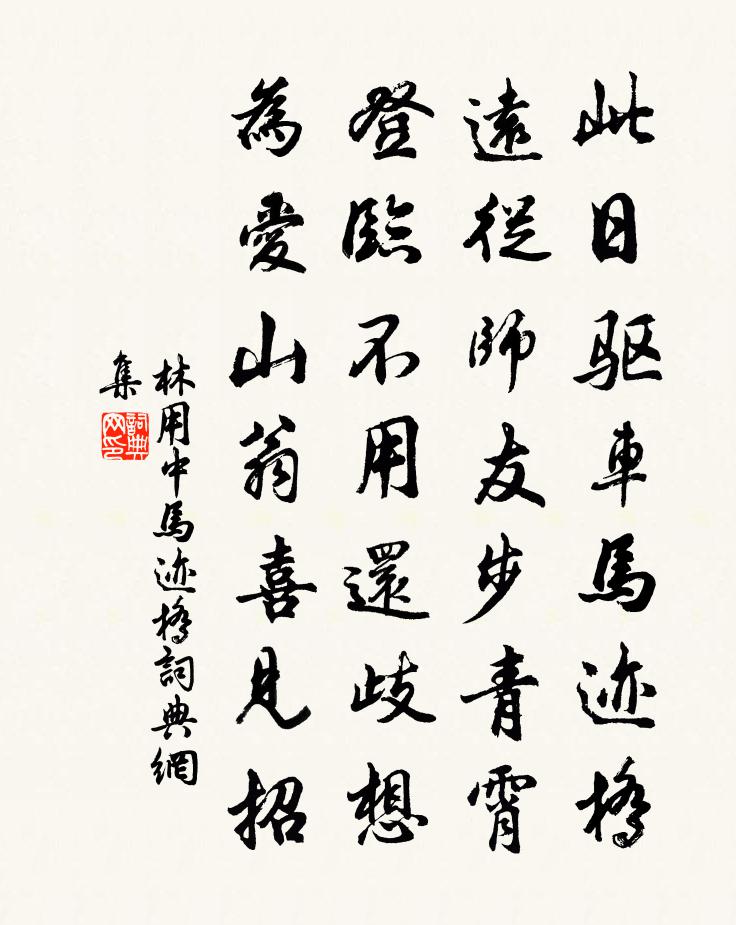 此日驱車馬迹橋
遠從師友步青霄
登臨不用還歧想
為愛山翁喜見招
林用中馬迹橋詞典網
集
詞典
网印